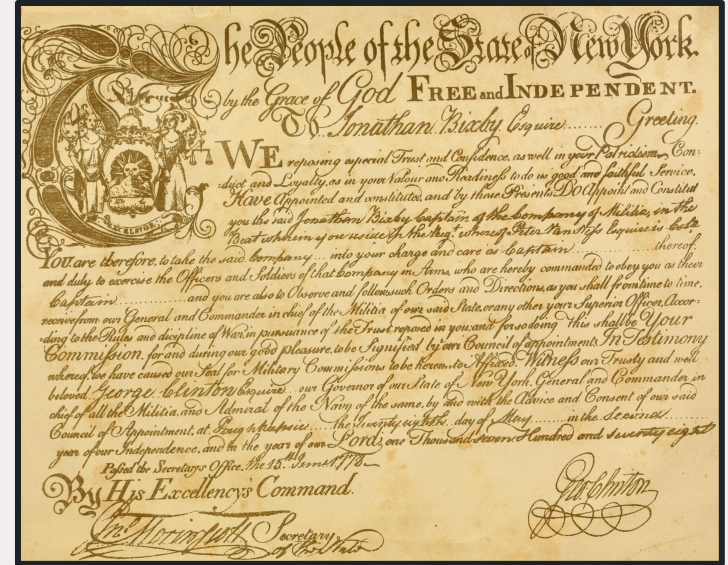 The People of the State of New York.
by the Grace of God FREE and INDEPENDENT.
TO Jonathan Bixby Esquire....... Greeting.
WE reposing especial Trust and Confidence, as well in your Patriotism, Con-
duct and Loyalty, as in your Valour and Readiness to do us good and faithful Service,
Have Appointed and constituted, and by these Presents, DO Appoint and Constitute
you the said Jonathan Bixby Captain of the Company of Militia, in the
Beat wherein you reside in the Regt. whereof Peter Van Ness Esquire is Colo
EXCELSIOR
YOU are therefore, to take the said Company.... into your charge and care as Captain............ thereof:
and duly to exercise the Officers and Soldiers of that Company in Arms, who are hereby commanded to obey you as their
Captain............ and you are also to Observe and follow such Orders and Directions, as you shall from time to time,
receive from our General and Commander in chief of the Militia of our said State, or any other your Superior Officer, Accor-
ding to the Rules and discipline of War, in pursuance of the Trust reposed in you; and for so doing this shall be Your
Commission, for and during our good pleasure, to be Signified by our Council of appointments. In Testimony
whereof, we have caused our Seal for Military Commissions to be hereunto Affixed. Witness our Trusty and well
beloved George Clinton Esquire... our Governor of our State of New York, General and Commander in
chief of all the Militia, and Admiral of the Navy of the same, by and with the Advice and Consent of our said
Council of Appointment, at the twenty eighth day of May...... in the Second.........
year of our Independence, and in the year of our Lord, one Thousand seven Hundred and seventy eight
Passed the Secretarys Office, the 15th June 1778–
By His Excellency's Command.
Geo. Clinton
Jno. Morin Scott Secretary
of the State